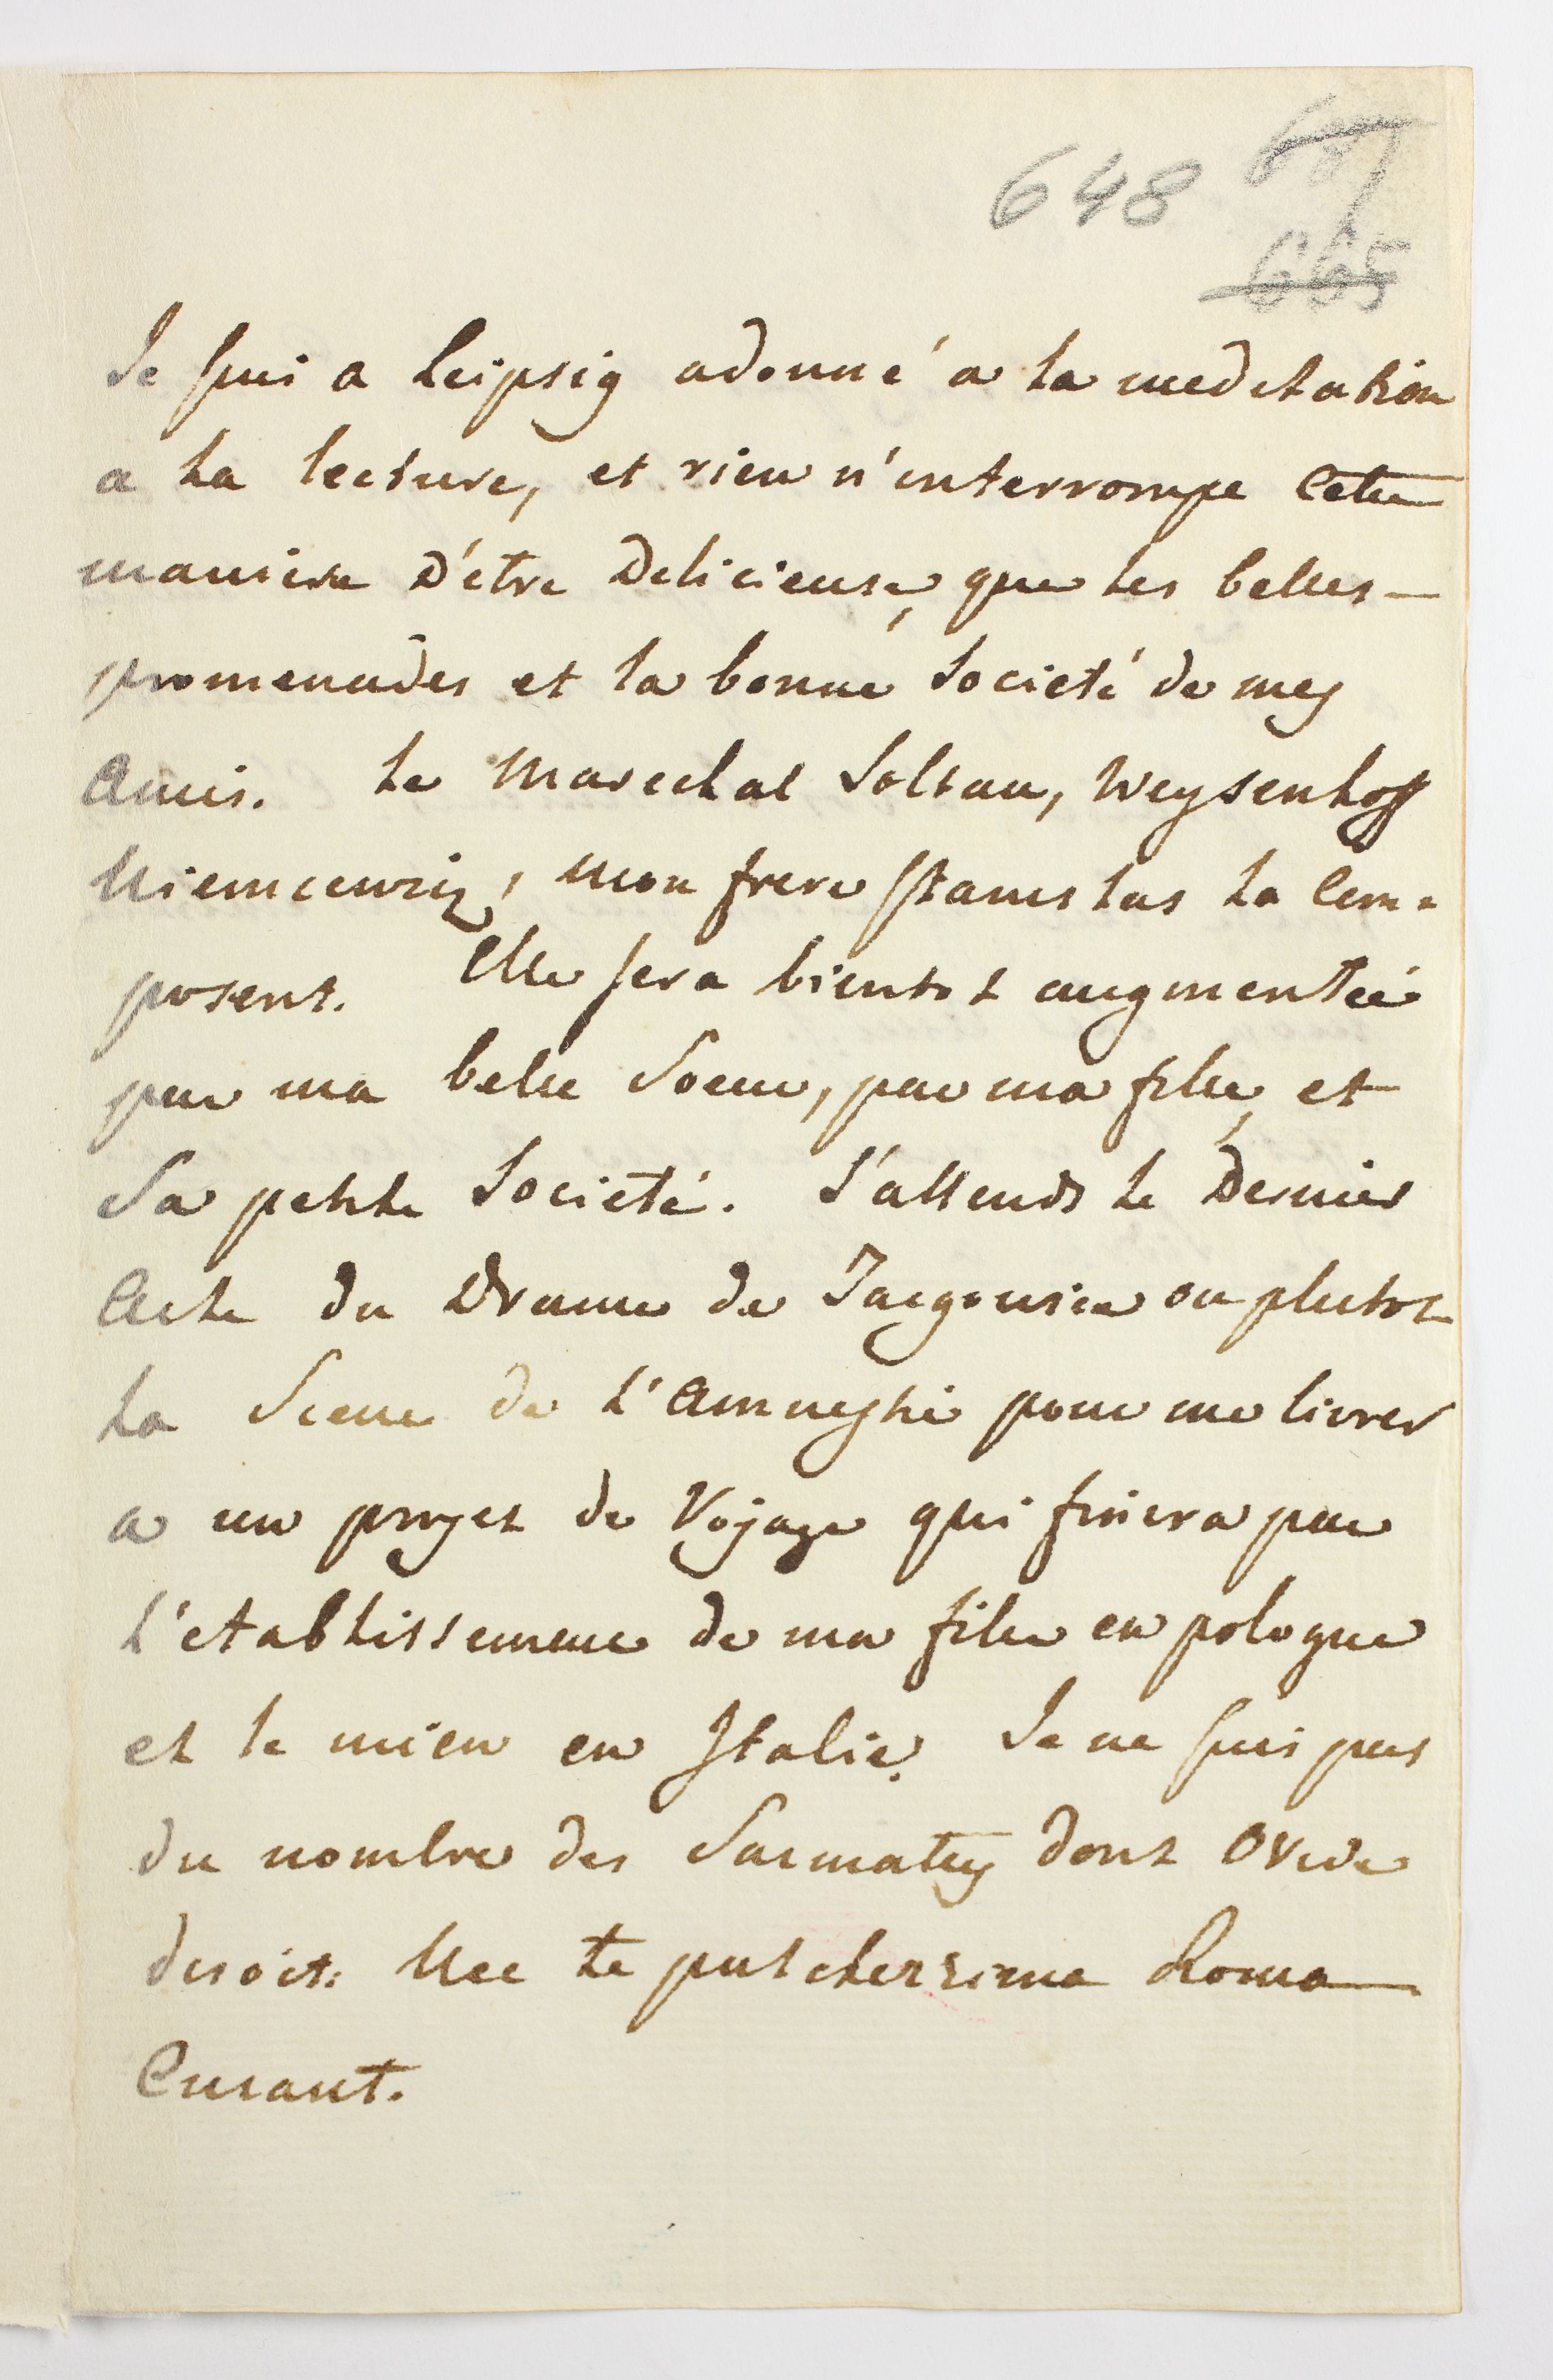 648 687
665
Je suis a Leipsig adonné a la meditation
a la lecture, et rien n'interrompe cette
maniere d'étre delicieuse, que les belles
promenades et la bonne societé de mes
amis. Le Marechal Soltan, Weysenhoff
Niemcewiz, mon frere Stanislas la com=
posent. Elle sera bientot augmentée
par ma belle soeur, par ma fille, et
sa petite societé. J'attends le dernier
acte du drame de Targovice ou plutot
la scene de l'amnestie pour me livrer
a un projet de Vojage qui finira par
l'etablissement de ma fille en pologne
et le mien en Italie. Je ne suis pas
du nombre des Sarmates dont Ovide
disoit: Nec te pulcherrima Roma
Curant.